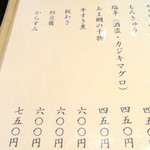 もろきゅう 四五〇円
塩辛(酒盗・カジキマグロ) 四五〇円
あま鯛の干物 四五〇円
牛すき煮 六〇〇円
板わさ 六〇〇円
狂豆腐 六〇〇円
からすみ 七五〇円